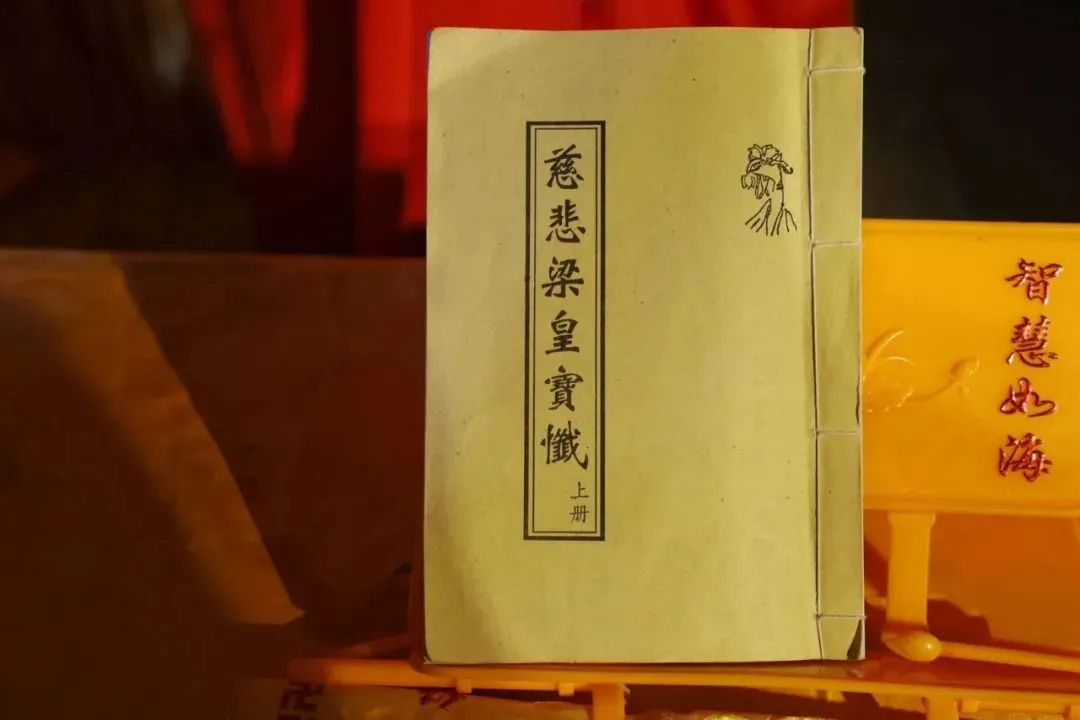 慈悲梁皇寶懺
上册
智慧如海
卍